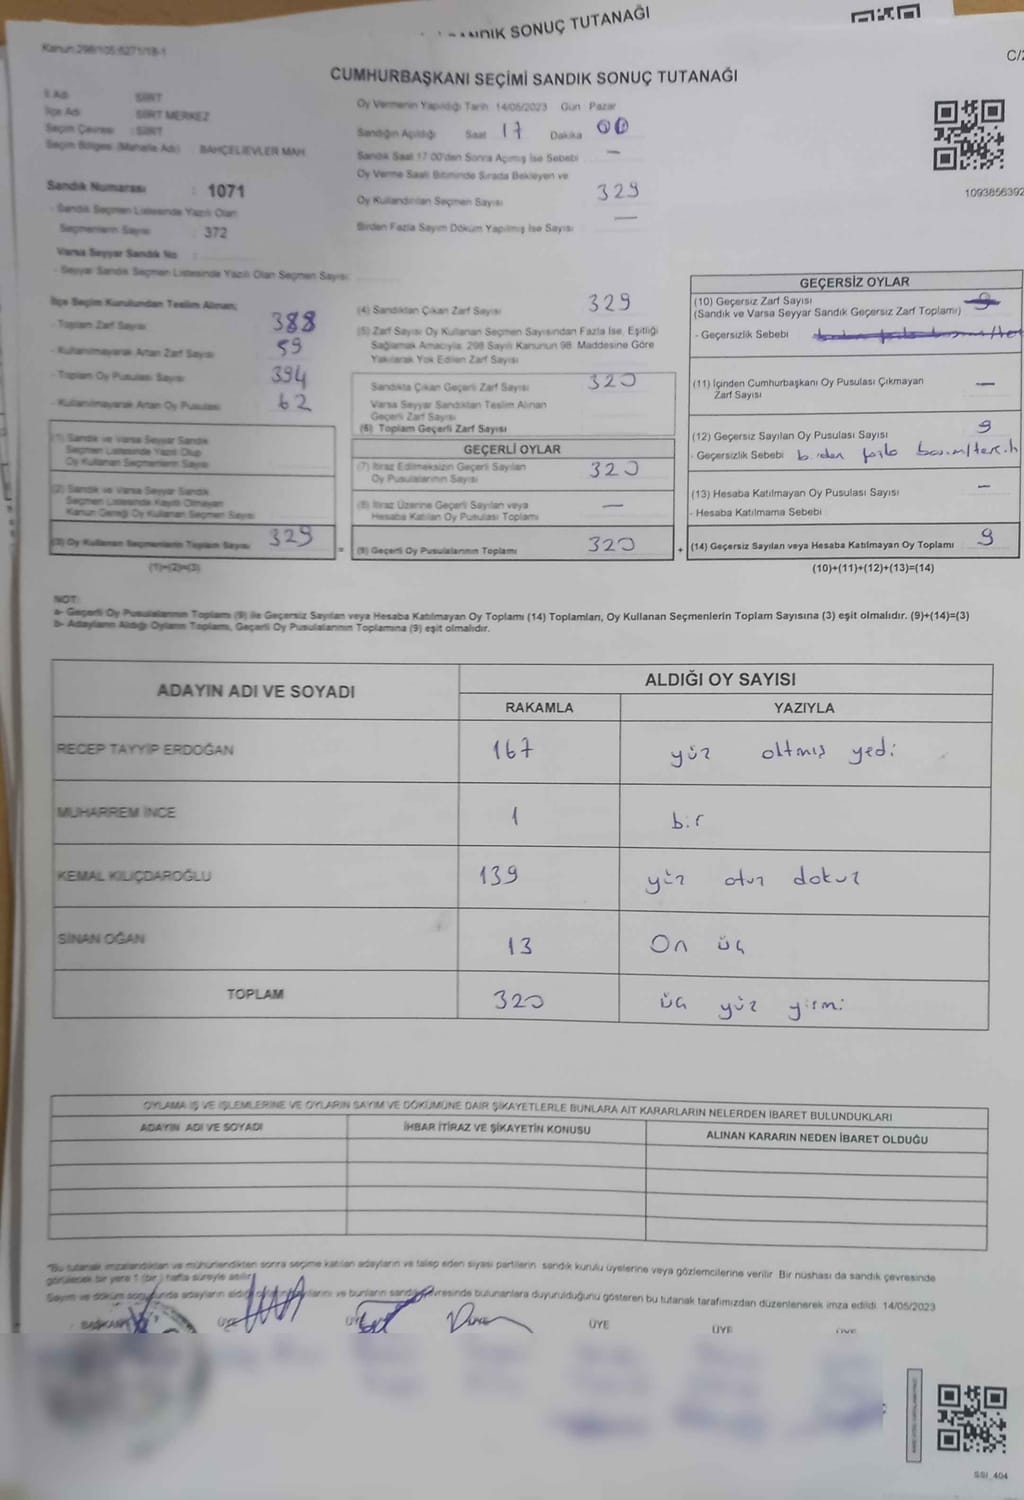 SANDIK SONUÇ TUTANAĞI
Kanun:298/105 6271/18-1
C/2
CUMHURBAŞKANI SEÇİMİ SANDIK SONUÇ TUTANAĞI
İl Adı : SİİRT
İlçe Adı : SİİRT MERKEZ
Seçim Çevresi : SİİRT
Seçim Bölgesi (Mahalle Adı) : BAHÇELİEVLER MAH.
Sandık Numarası : 1071
- Sandık Seçmen Listesinde Yazılı Olan
Seçmenlerin Sayısı : 372
Varsa Seyyar Sandık No :
- Seyyar Sandık Seçmen Listesinde Yazılı Olan Seçmen Sayısı:
Oy Vermenin Yapıldığı Tarih 14/05/2023 Gün Pazar
Sandığın Açıldığı Saat 17 Dakika 00
Sandık Saat 17:00'den Sonra Açılmış İse Sebebi —
Oy Verme Saati Bitiminde Sırada Bekleyen ve
Oy Kullandırılan Seçmen Sayısı 329
Birden Fazla Sayım Döküm Yapılmış İse Sayısı —
1093856392
İlçe Seçim Kurulundan Teslim Alınan;
- Toplam Zarf Sayısı 388
- Kullanılmayarak Artan Zarf Sayısı 59
- Toplam Oy Pusulası Sayısı 394
- Kullanılmayarak Artan Oy Pusulası 62
(1) Sandık ve Varsa Seyyar Sandık
Seçmen Listesinde Yazılı Olup
Oy Kullanan Seçmenlerin Sayısı
(2) Sandık ve Varsa Seyyar Sandık
Seçmen Listesinde Kayıtlı Olmayan
Kanun Gereği Oy Kullanan Seçmen Sayısı
(3) Oy Kullanan Seçmenlerin Toplam Sayısı 329
(1)+(2)=(3)
(4) Sandıktan Çıkan Zarf Sayısı 329
(5) Zarf Sayısı Oy Kullanan Seçmen Sayısından Fazla İse, Eşitliği
Sağlamak Amacıyla, 298 Sayılı Kanunun 98. Maddesine Göre
Yakılarak Yok Edilen Zarf Sayısı
Sandıkta Çıkan Geçerli Zarf Sayısı 320
Varsa Seyyar Sandıktan Teslim Alınan
Geçerli Zarf Sayısı
(6) Toplam Geçerli Zarf Sayısı
GEÇERLİ OYLAR
(7) İtiraz Edilmeksizin Geçerli Sayılan
Oy Pusulalarının Sayısı 320
(8) İtiraz Üzerine Geçerli Sayılan veya
Hesaba Katılan Oy Pusulası Toplamı —
= (9) Geçerli Oy Pusulalarının Toplamı 320
GEÇERSİZ OYLAR
(10) Geçersiz Zarf Sayısı
(Sandık ve Varsa Seyyar Sandık Geçersiz Zarf Toplamı) 9
- Geçersizlik Sebebi
(11) İçinden Cumhurbaşkanı Oy Pusulası Çıkmayan
Zarf Sayısı —
(12) Geçersiz Sayılan Oy Pusulası Sayısı 9
- Geçersizlik Sebebi birden fazla basım/tercih
(13) Hesaba Katılmayan Oy Pusulası Sayısı —
- Hesaba Katılmama Sebebi
+ (14) Geçersiz Sayılan veya Hesaba Katılmayan Oy Toplamı 9
(10)+(11)+(12)+(13)=(14)
NOT:
a- Geçerli Oy Pusulalarının Toplamı (9) ile Geçersiz Sayılan veya Hesaba Katılmayan Oy Toplamı (14) Toplamları, Oy Kullanan Seçmenlerin Toplam Sayısına (3) eşit olmalıdır. (9)+(14)=(3)
b- Adayların Aldığı Oyların Toplamı, Geçerli Oy Pusulalarının Toplamına (9) eşit olmalıdır.
ADAYIN ADI VE SOYADI ALDIĞI OY SAYISI
RAKAMLA YAZIYLA
RECEP TAYYİP ERDOĞAN 167 yüz altmış yedi
MUHARREM İNCE 1 bir
KEMAL KILIÇDAROĞLU 139 yüz otuz dokuz
SİNAN OĞAN 13 On üç
TOPLAM 320 üç yüz yirmi
OYLAMA İŞ VE İŞLEMLERİNE VE OYLARIN SAYIM VE DÖKÜMÜNE DAİR ŞİKAYETLERLE BUNLARA AİT KARARLARIN NELERDEN İBARET BULUNDUKLARI
ADAYIN ADI VE SOYADI İHBAR İTİRAZ VE ŞİKAYETİN KONUSU ALINAN KARARIN NEDEN İBARET OLDUĞU
*Bu tutanak imzalandıktan ve mühürlendikten sonra seçime katılan adayların ve talep eden siyasi partilerin sandık kurulu üyelerine veya gözlemcilerine verilir. Bir nüshası da sandık çevresinde
görülecek bir yere 1 (bir) hafta süreyle asılır.
Sayım ve döküm sonucunda adayların aldığı ve bunların sandık çevresinde bulunanlara duyurulduğunu gösteren bu tutanak tarafımızdan düzenlenerek imza edildi. 14/05/2023
BAŞKAN ÜYE ÜYE ÜYE ÜYE ÜYE
SSI_404